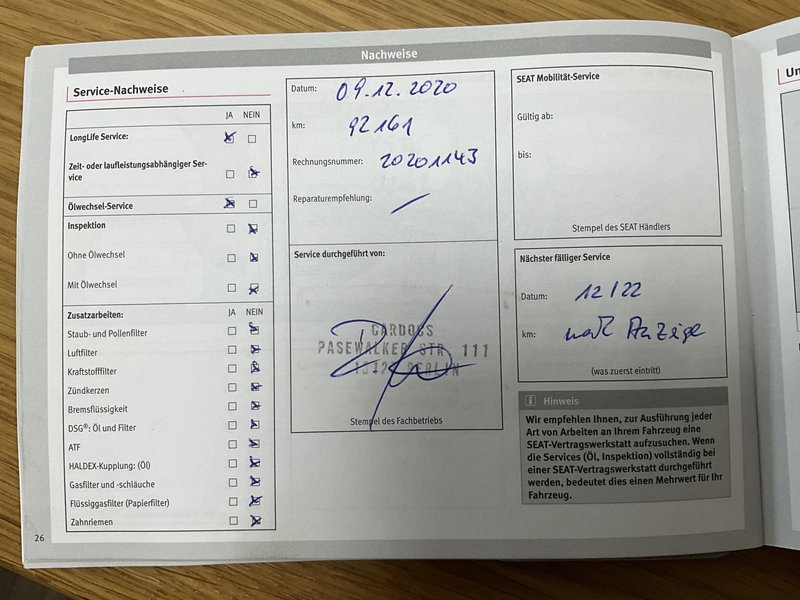 Nachweise
Service-Nachweise
JA NEIN
LongLife Service:
Zeit- oder laufleistungsabhängiger Ser-
vice
Ölwechsel-Service
Inspektion
Ohne Ölwechsel
Mit Ölwechsel
Zusatzarbeiten: JA NEIN
Staub- und Pollenfilter
Luftfilter
Kraftstofffilter
Zündkerzen
Bremsflüssigkeit
DSG®: Öl und Filter
ATF
HALDEX-Kupplung: (Öl)
Gasfilter und -schläuche
Flüssiggasfilter (Papierfilter)
Zahnriemen
26
Datum: 09.12.2020
km: 92161
Rechnungsnummer: 20201143
Reparaturempfehlung: /
Service durchgeführt von:
CARDOCS
PASEWALKER STR. 111
BERLIN
Stempel des Fachbetriebs
SEAT Mobilität-Service
Gültig ab:
bis:
Stempel des SEAT Händlers
Nächster fälliger Service
Datum: 12/22
km: nach Anzeige
(was zuerst eintritt)
i Hinweis
Wir empfehlen Ihnen, zur Ausführung jeder
Art von Arbeiten an Ihrem Fahrzeug eine
SEAT-Vertragswerkstatt aufzusuchen. Wenn
die Services (Öl, Inspektion) vollständig bei
einer SEAT-Vertragswerkstatt durchgeführt
werden, bedeutet dies einen Mehrwert für Ihr
Fahrzeug.